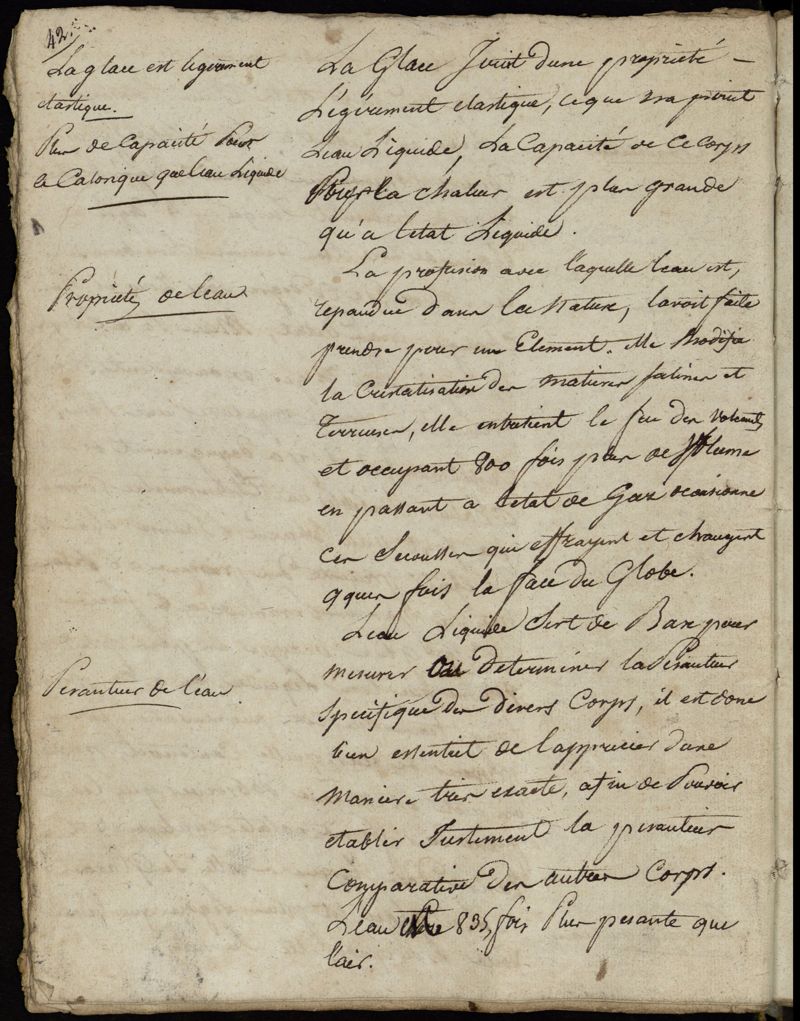 42.
La glace est legerement
elastique.
Plus de Capacité Pour
le Calorique que l'eau Liquide
Propriété de l'eau
Pesanteur de l'éau.
La Glace Jouit d'une propriété
Légérement elastique, ce que n'a point
L'eau Liquide, La Capacité de ce Corps
Pour la chaleur est plus grande
qu'a letat Liquide.
La profusion avec l'aquelle leau est,
repandue dans la Nature, lavoit faite
prendre pour un Element. elle Modifie
la Cristalisation des matieres salines et
Terreuses, elle entretient le feu des Volcans,
et occupant 800 fois plus de Volume
en passant a letat de Gaz occasionne
ces Secousses qui effrayent et changent
qquer fois la face du Globe.
Leau Liquide Sert de Base pour
mesurer ou determiner la Pesanteur
Specifique des divers Corps, il est donc
bien essentiel de l'apprecier d'une
maniere tres exacte, afin de Pouvoir
etablir Justement la pesanteur
Comparative des autres Corps.
L'eau 835, fois Plus pesante que
l'air.